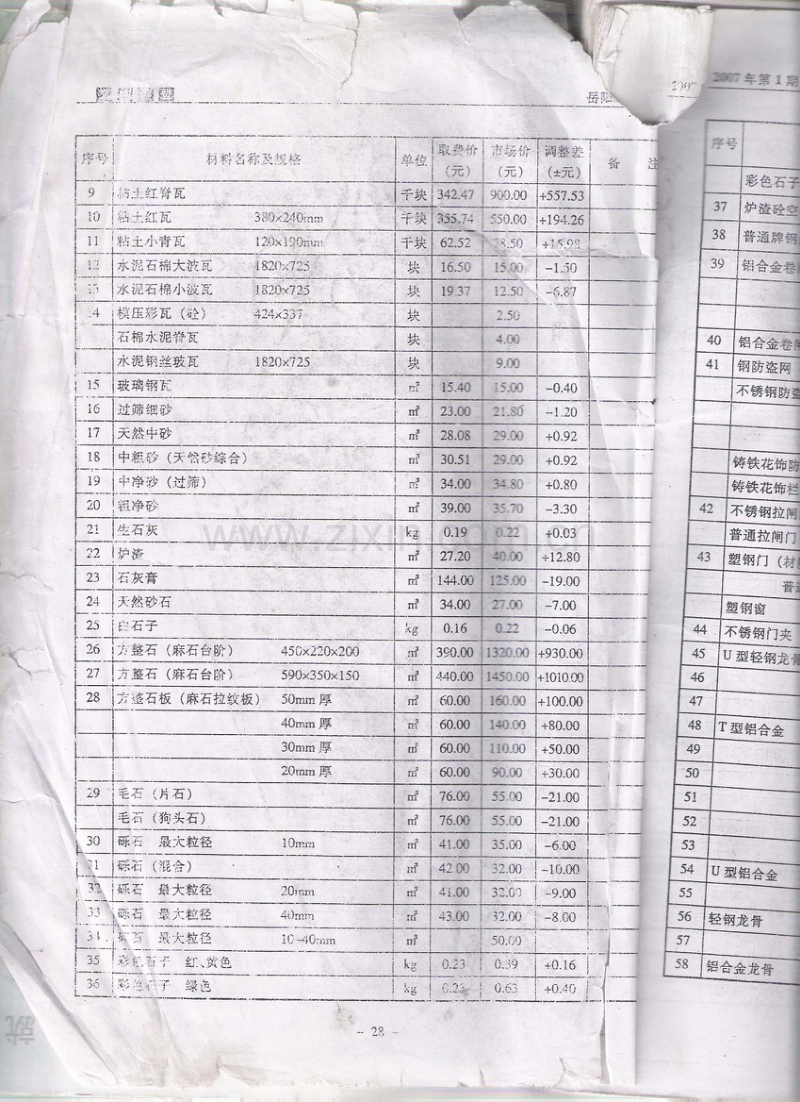 岳阳
2007
序号 材料名称及规格 单位 取费价(元) 市场价(元) 调整差(±元) 备 注
9 粘土红脊瓦 千块 342.47 900.00 +557.53
10 粘土红瓦 380×240mm 千块 355.74 550.00 +194.26
11 粘土小青瓦 120×190mm 千块 62.52 78.50 +15.98
12 水泥石棉大波瓦 1820×725 块 16.50 15.00 -1.50
13 水泥石棉小波瓦 1820×725 块 19.37 12.50 -6.87
14 模压彩瓦（砼） 424×337 块 2.50
石棉水泥脊瓦 块 4.00
水泥钢丝玻瓦 1820×725 块 9.00
15 玻璃钢瓦 ㎡ 15.40 15.00 -0.40
16 过筛细砂 m³ 23.00 21.80 -1.20
17 天然中砂 m³ 28.08 29.00 +0.92
18 中粗砂（天然砂综合） m³ 30.51 29.00 +0.92
19 中净砂（过筛） m³ 34.00 34.80 +0.80
20 粗净砂 m³ 39.00 35.70 -3.30
21 生石灰 kg 0.19 0.22 +0.03
22 炉渣 m³ 27.20 40.00 +12.80
23 石灰膏 m³ 144.00 125.00 -19.00
24 天然砂石 m³ 34.00 27.00 -7.00
25 白石子 kg 0.16 0.22 -0.06
26 方整石（麻石台阶） 450×220×200 m³ 390.00 1320.00 +930.00
27 方整石（麻石台阶） 590×350×150 m³ 440.00 1450.00 +1010.00
28 方整石板（麻石拉纹板） 50mm 厚 ㎡ 60.00 160.00 +100.00
40mm 厚 ㎡ 60.00 140.00 +80.00
30mm 厚 ㎡ 60.00 110.00 +50.00
20mm 厚 ㎡ 60.00 90.00 +30.00
29 毛石（片石） m³ 76.00 55.00 -21.00
毛石（狗头石） m³ 76.00 55.00 -21.00
30 砾石 最大粒径 10mm m³ 41.00 35.00 -6.00
31 砾石（混合） m³ 42.00 32.00 -10.00
32 砾石 最大粒径 20mm m³ 41.00 32.00 -9.00
33 砾石 最大粒径 40mm m³ 43.00 32.00 -8.00
34 砾石 最大粒径 10-40mm m³ 50.00
35 彩色石子 红、黄色 kg 0.23 0.39 +0.16
36 彩色石子 绿色 kg 0.63 +0.40
- 28 -
2007年第1期
序号
彩色石子
37 炉渣砼空
38 普通牌钢
39 铝合金卷
40 铝合金卷
41 钢防盗网
不锈钢防盗
铸铁花饰防
铸铁花饰栏
42 不锈钢拉闸
普通拉闸门
43 塑钢门（材
普通
塑钢窗
44 不锈钢门夹
45 U型轻钢龙骨
46
47
48 T型铝合金
49
50
51
52
53
54 U型铝合金
55
56 轻钢龙骨
57
58 铝合金龙骨
就